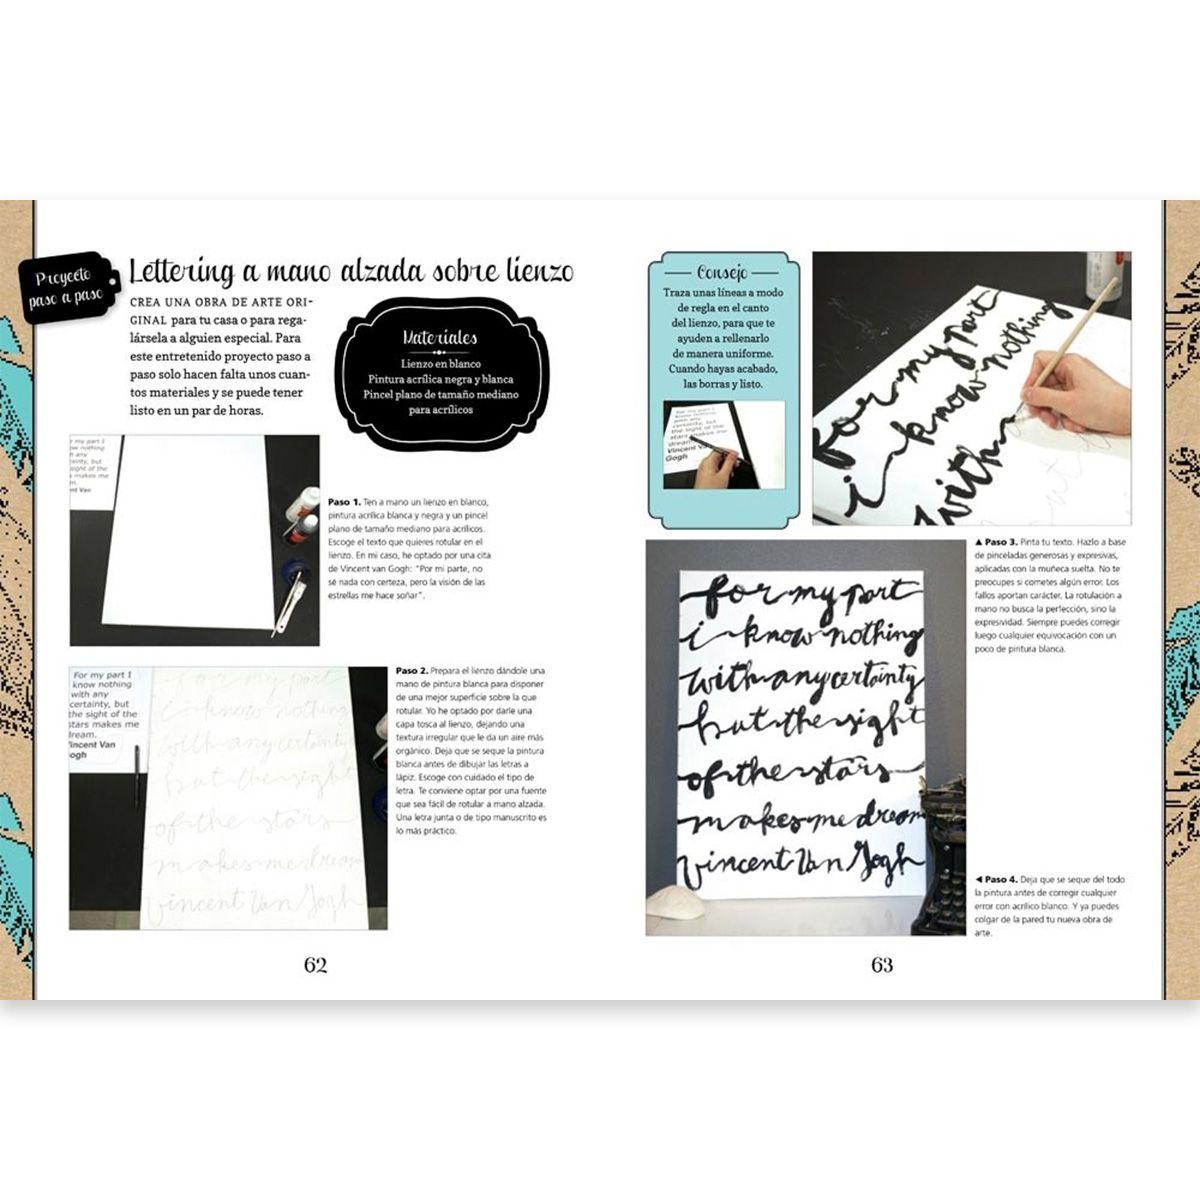 Proyecto
paso a paso
Lettering a mano alzada sobre lienzo
CREA UNA OBRA DE ARTE ORI-
GINAL para tu casa o para rega-
lársela a alguien especial. Para
este entretenido proyecto paso a
paso solo hacen falta unos cuan-
tos materiales y se puede tener
listo en un par de horas.
Materiales
Lienzo en blanco
Pintura acrílica negra y blanca
Pincel plano de tamaño mediano
para acrílicos
r my part I
ow nothing
h any
tainty, but
sight of the
s makes me
m.
nt Van
Paso 1. Ten a mano un lienzo en blanco,
pintura acrílica blanca y negra y un pincel
plano de tamaño mediano para acrílicos.
Escoge el texto que quieres rotular en el
lienzo. En mi caso, he optado por una cita
de Vincent van Gogh: "Por mi parte, no
sé nada con certeza, pero la visión de las
estrellas me hace soñar".
For my part I
know nothing
with any
certainty, but
the sight of the
stars makes me
dream.
Vincent Van
ogh
for my part
i know nothing
with any certainty
but the sight
of the stars
makes me dream
vincent Van Gogh
Paso 2. Prepara el lienzo dándole una
mano de pintura blanca para disponer
de una mejor superficie sobre la que
rotular. Yo he optado por darle una
capa tosca al lienzo, dejando una
textura irregular que le da un aire más
orgánico. Deja que se seque la pintura
blanca antes de dibujar las letras a
lápiz. Escoge con cuidado el tipo de
letra. Te conviene optar por una fuente
que sea fácil de rotular a mano alzada.
Una letra junta o de tipo manuscrito es
lo más práctico.
62
Consejo
Traza unas líneas a modo
de regla en el canto
del lienzo, para que te
ayuden a rellenarlo
de manera uniforme.
Cuando hayas acabado,
las borras y listo.
For my part I
know nothing
with any
certainty, but
the sight of the
stars makes me
dream
Vincent Va
Gogh
for my part
i know nothing
with
▲ Paso 3. Pinta tu texto. Hazlo a base
de pinceladas generosas y expresivas,
aplicadas con la muñeca suelta. No te
preocupes si cometes algún error. Los
fallos aportan carácter. La rotulación a
mano no busca la perfección, sino la
expresividad. Siempre puedes corregir
luego cualquier equivocación con un
poco de pintura blanca.
for my part
i know nothing
with any certainty
but the sight
of the stars
makes me dream
vincent Van Gogh
◄ Paso 4. Deja que se seque del todo
la pintura antes de corregir cualquier
error con acrílico blanco. Y ya puedes
colgar de la pared tu nueva obra de
arte.
63